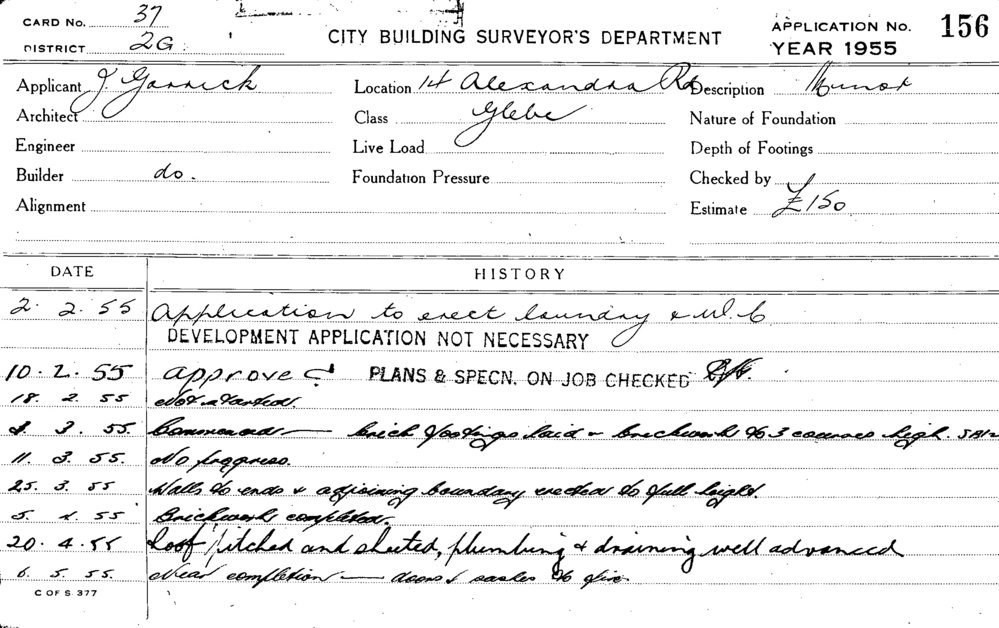 CARD No. 37
DISTRICT 2G.
CITY BUILDING SURVEYOR'S DEPARTMENT
APPLICATION No. 156
YEAR 1955
Applicant J. Garrick Location 14 Alexandra Rd Description Minor
Architect Class Glebe Nature of Foundation
Engineer Live Load Depth of Footings
Builder do. Foundation Pressure Checked by
Alignment Estimate £150
DATE HISTORY
2. 2. 55 Application to erect laundry & W.C
DEVELOPMENT APPLICATION NOT NECESSARY
10. 2. 55 approved PLANS & SPECN. ON JOB CHECKED
18. 2. 55 Not started.
3. 55 Commenced — brick footings laid & brickwork to 3 courses high.
11. 3. 55. No progress.
25. 3. 55 Walls to ends & adjoining boundary erected to full height.
5. 4. 55 Brickwork completed.
20. 4. 55 Roof pitched and sheeted, plumbing & draining well advanced
6. 5. 55. Near completion — doors & sashes to fix.
C OF S 377